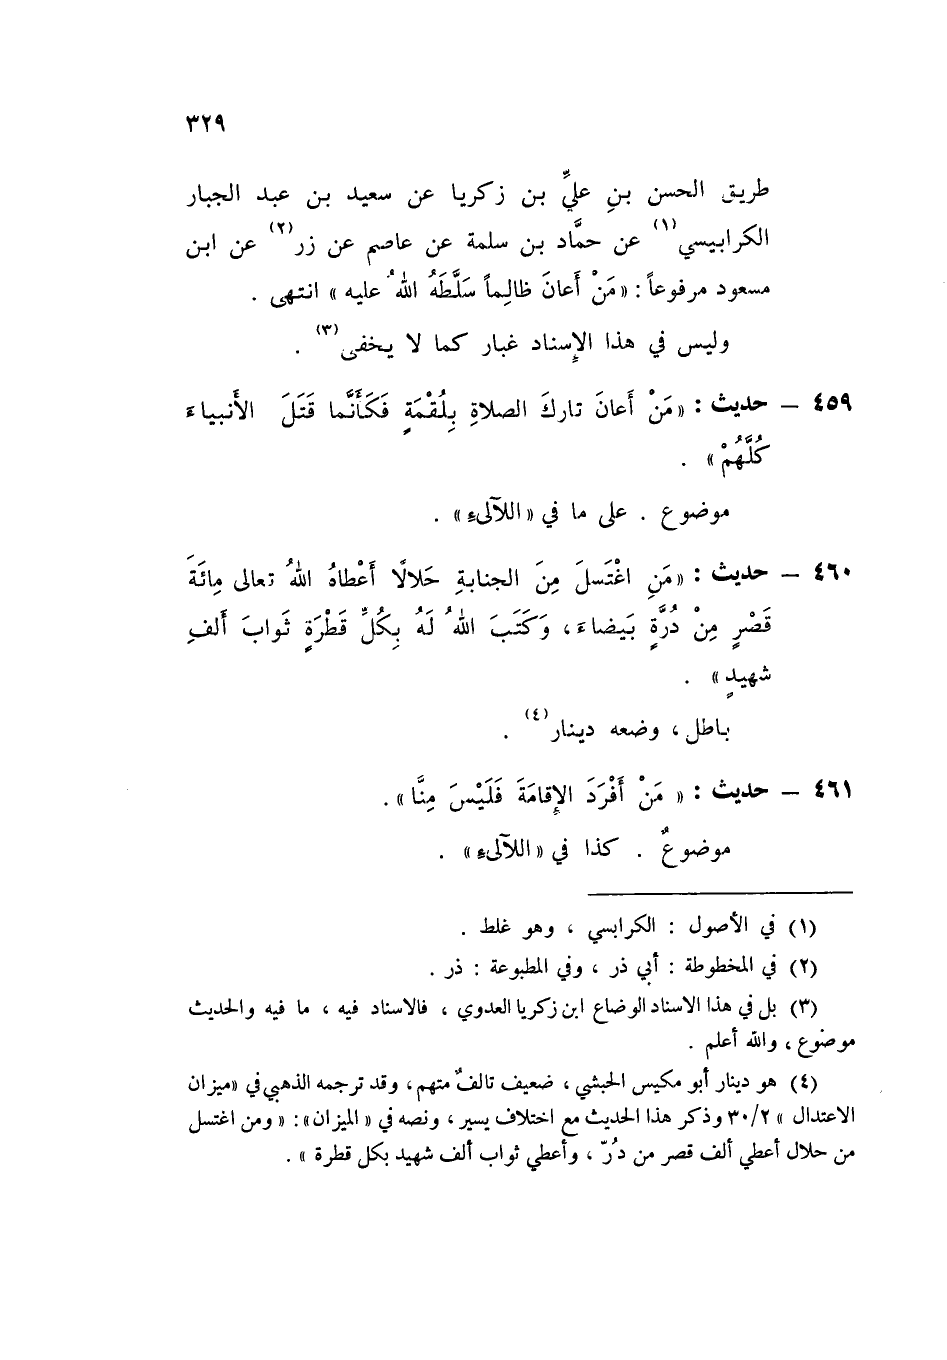 ٣٢٩
طريق الحسن بنِ عليٍّ بن زكريا عن سعيد بن عبد الجبار
الكرابيسي(١) عن حمَّاد بن سلمة عن عاصم عن زر(٢) عن ابن
مسعود مرفوعاً : « مَنْ أَعانَ ظالِماً سَلَّطَهُ اللهُ عليه » انتهى .
وليس في هذا الإِسناد غبار كما لا يخفى(٣) .
٤٥٩ – حديث : « مَنْ أَعانَ تارِكَ الصلاةِ بِلُقْمَةٍ فَكَأَنَّما قَتَلَ الأَنبياءَ
كُلَّهُمْ » .
موضوع . على ما في « اللآلىء » .
٤٦٠ – حديث : « مَنِ اغْتَسلَ مِنَ الجنابةِ حَلالًا أَعْطاهُ اللهُ تعالى مِائَةَ
قَصْرٍ مِنْ دُرَّةٍ بَيضاءَ ، وَكَتَبَ اللهُ لَهُ بِكُلِّ قَطْرَةٍ ثَوابَ أَلفِ
شهيدٍ » .
باطل ، وضعه دينار(٤) .
٤٦١ – حديث : « مَنْ أَفْرَدَ الإِقامَةَ فَلَيْسَ مِنَّا » .
موضوعٌ . كذا في « اللآلىء » .
(١) في الأصول : الكرابسي ، وهو غلط .
(٢) في المخطوطة : أبي ذر ، وفي المطبوعة : ذر .
(٣) بل في هذا الاسناد الوضاع ابن زكريا العدوي ، فالاسناد فيه ، ما فيه والحديث
موضوع ، والله أعلم .
(٤) هو دينار أبو مكيس الحبشي ، ضعيف تالفٌ متهم ، وقد ترجمه الذهبي في « ميزان
الاعتدال » ٣٠/٢ وذكر هذا الحديث مع اختلاف يسير ، ونصه في « الميزان » : « ومن اغتسل
من حلال أعطي ألف قصر من دُرّ ، وأعطي ثواب ألف شهيد بكل قطرة » .